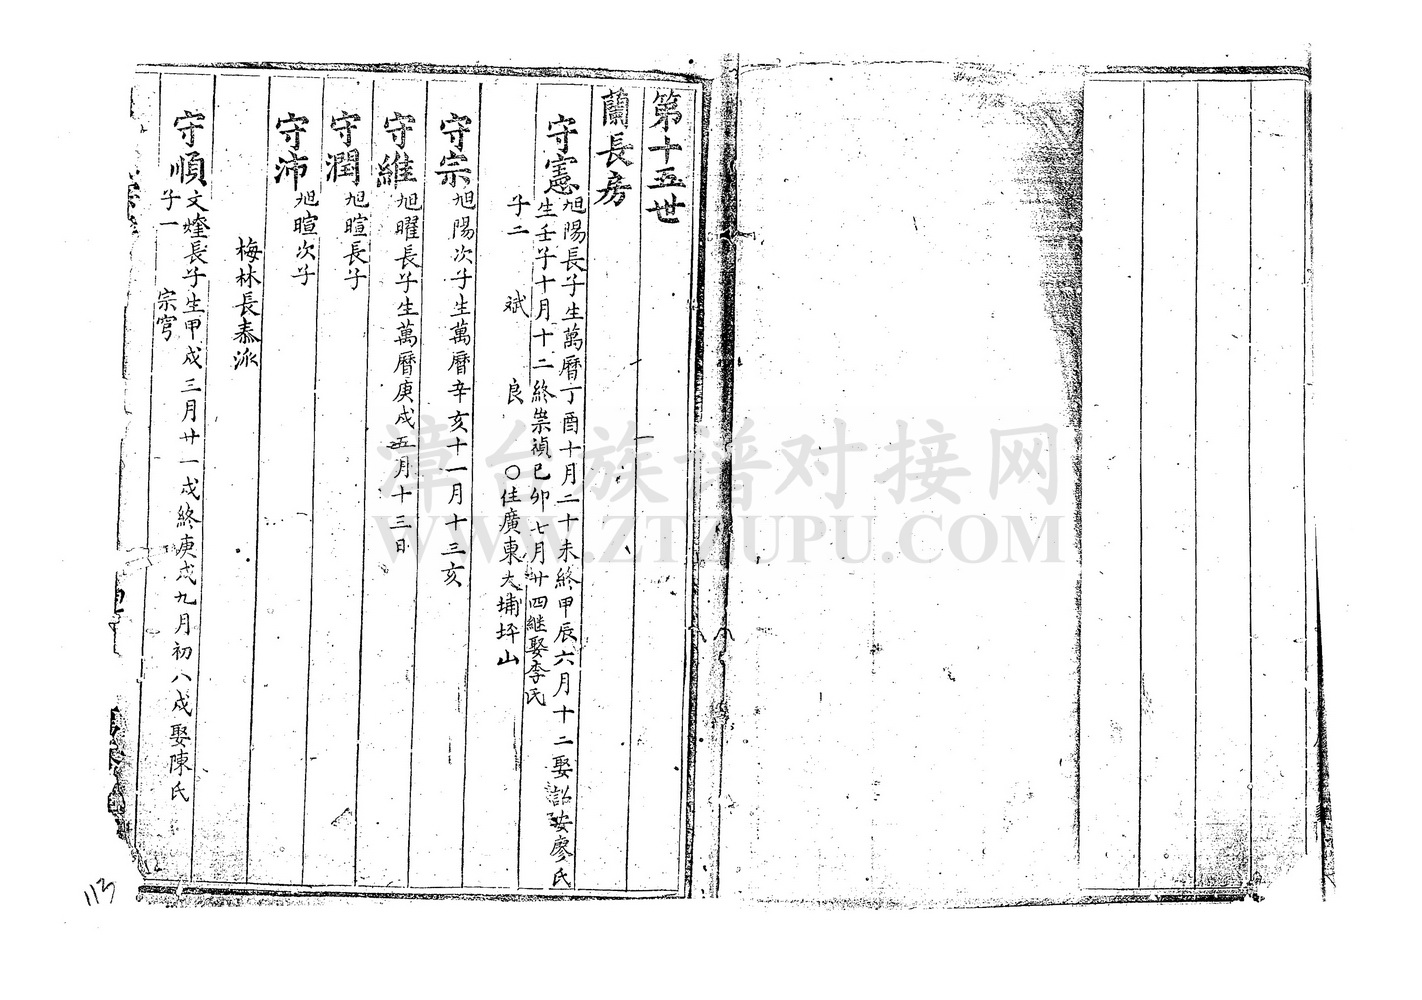 第十五世
蘭長房
守憲 旭陽長子生萬曆丁酉十月二十未終甲辰六月十二娶詔安廖氏
生壬子十月十二終崇禎己卯七月廿四繼娶李氏
子二 斌 良 ○住廣東大埔坪山
守宗 旭陽次子生萬曆辛亥十一月十三亥
守維 旭曜長子生萬曆庚戌五月十三日
守潤 旭暄長子
守沛 旭暄次子
梅林長泰派
守順 文燵長子生甲戌三月廿一戌終庚戌九月初八戌娶陳氏
子一 宗穹
113
漳台族谱对接网
WWW.ZTZUPU.COM